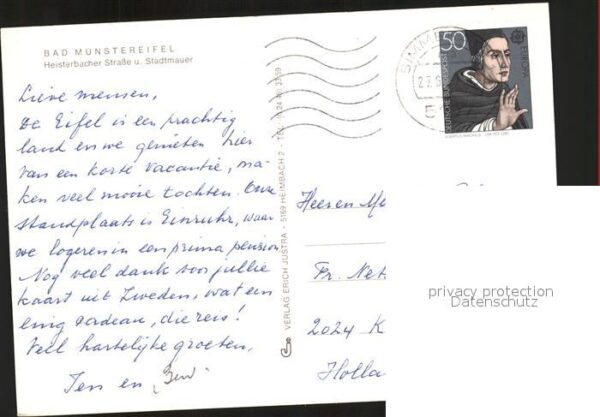 BAD MÜNSTEREIFEL
Heisterbacher Straße u. Stadtmauer
Lieve mensen,
De Eifel is een prachtig
land en we genieten hier
van een korte vacantie, ma-
ken veel mooie tochten. Onze
standplaats is Einruhr, waar
we logeren in een prima pension
Nog veel dank voor jullie
kaart uit Zweden, wat een
enig cadeau, die reis!
Veel hartelijke groeten,
Jens en
VERLAG ERICH JUSTRA - 5169 HEIMBACH 2 -
SIMME
50
DEUTSCHE BUNDESPOST
EUROPA
Heeren Me
Fr. Net
2024 K
Holla
privacy protection
Datenschutz